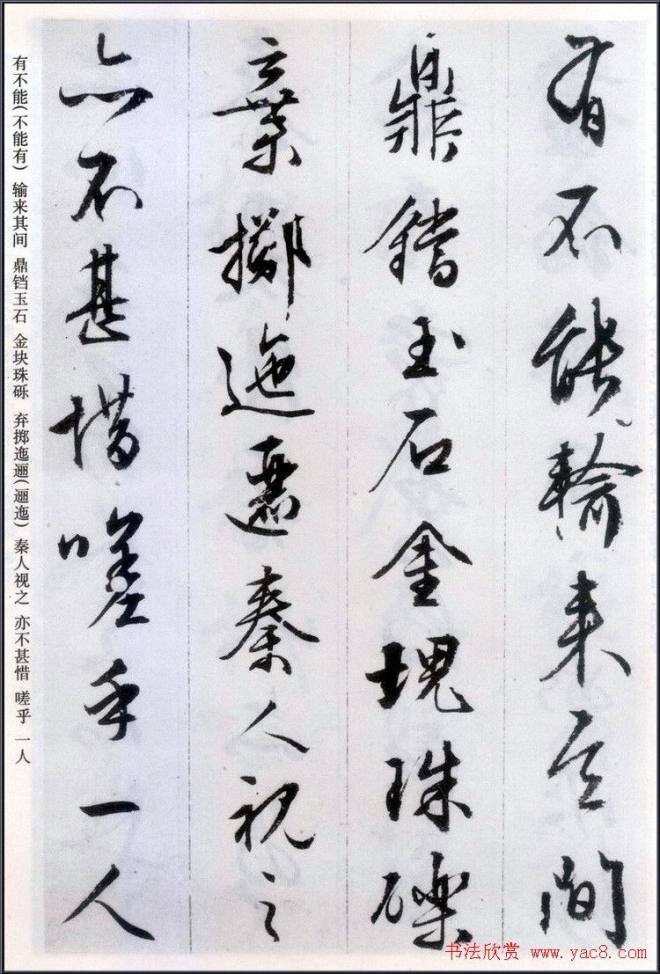 有不能輸来其间
鼎鐺玉石金塊珠礫
棄擲迤邐秦人視之
亦不甚惜嗟乎一人
有不能(不能有) 输来其间 鼎铛玉石 金块珠砾 弃掷迤逦(逦迤) 秦人视之 亦不甚惜 嗟乎 一人
书法欣赏 www.yac8.com